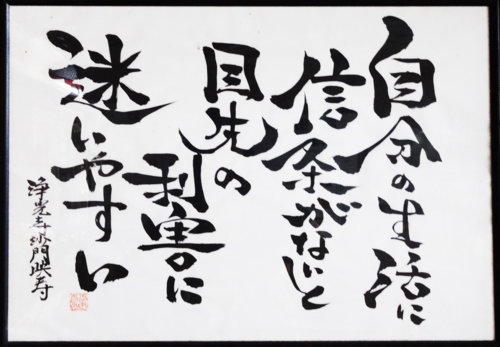 自分の生活に
信条がないと
目先の
利害に
迷いやすい
浄光寺沙門映寿